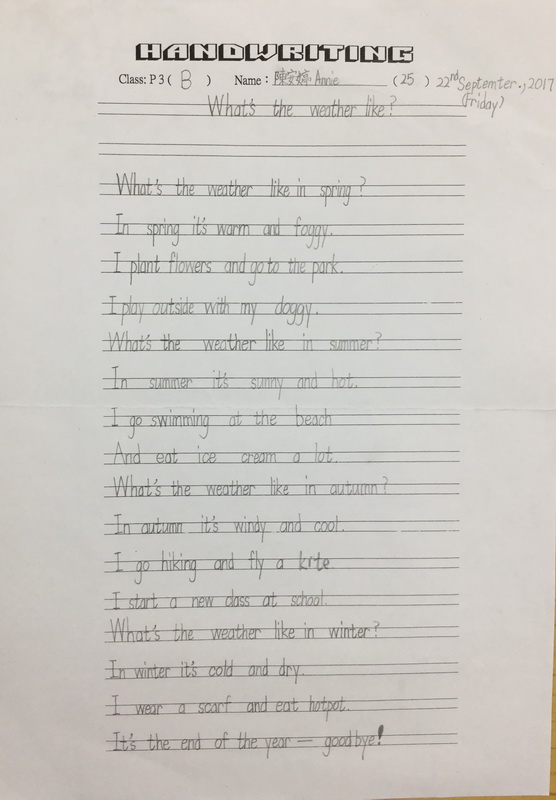 HANDWRITING
Class: P 3 ( B ) Name : 陳安婷 Annie ( 25 ) 22nd Septemter., 2017
(Friday)
What's the weather like?
What's the weather like in spring?
In spring it's warm and foggy.
I plant flowers and go to the park.
I play outside with my doggy.
What's the weather like in summer?
In summer it's sunny and hot.
I go swimming at the beach
And eat ice cream a lot.
What's the weather like in autumn?
In autumn it's windy and cool.
I go hiking and fly a kite
I start a new class at school.
What's the weather like in winter?
In winter it's cold and dry.
I wear a scarf and eat hotpot.
It's the end of the year — goodbye!